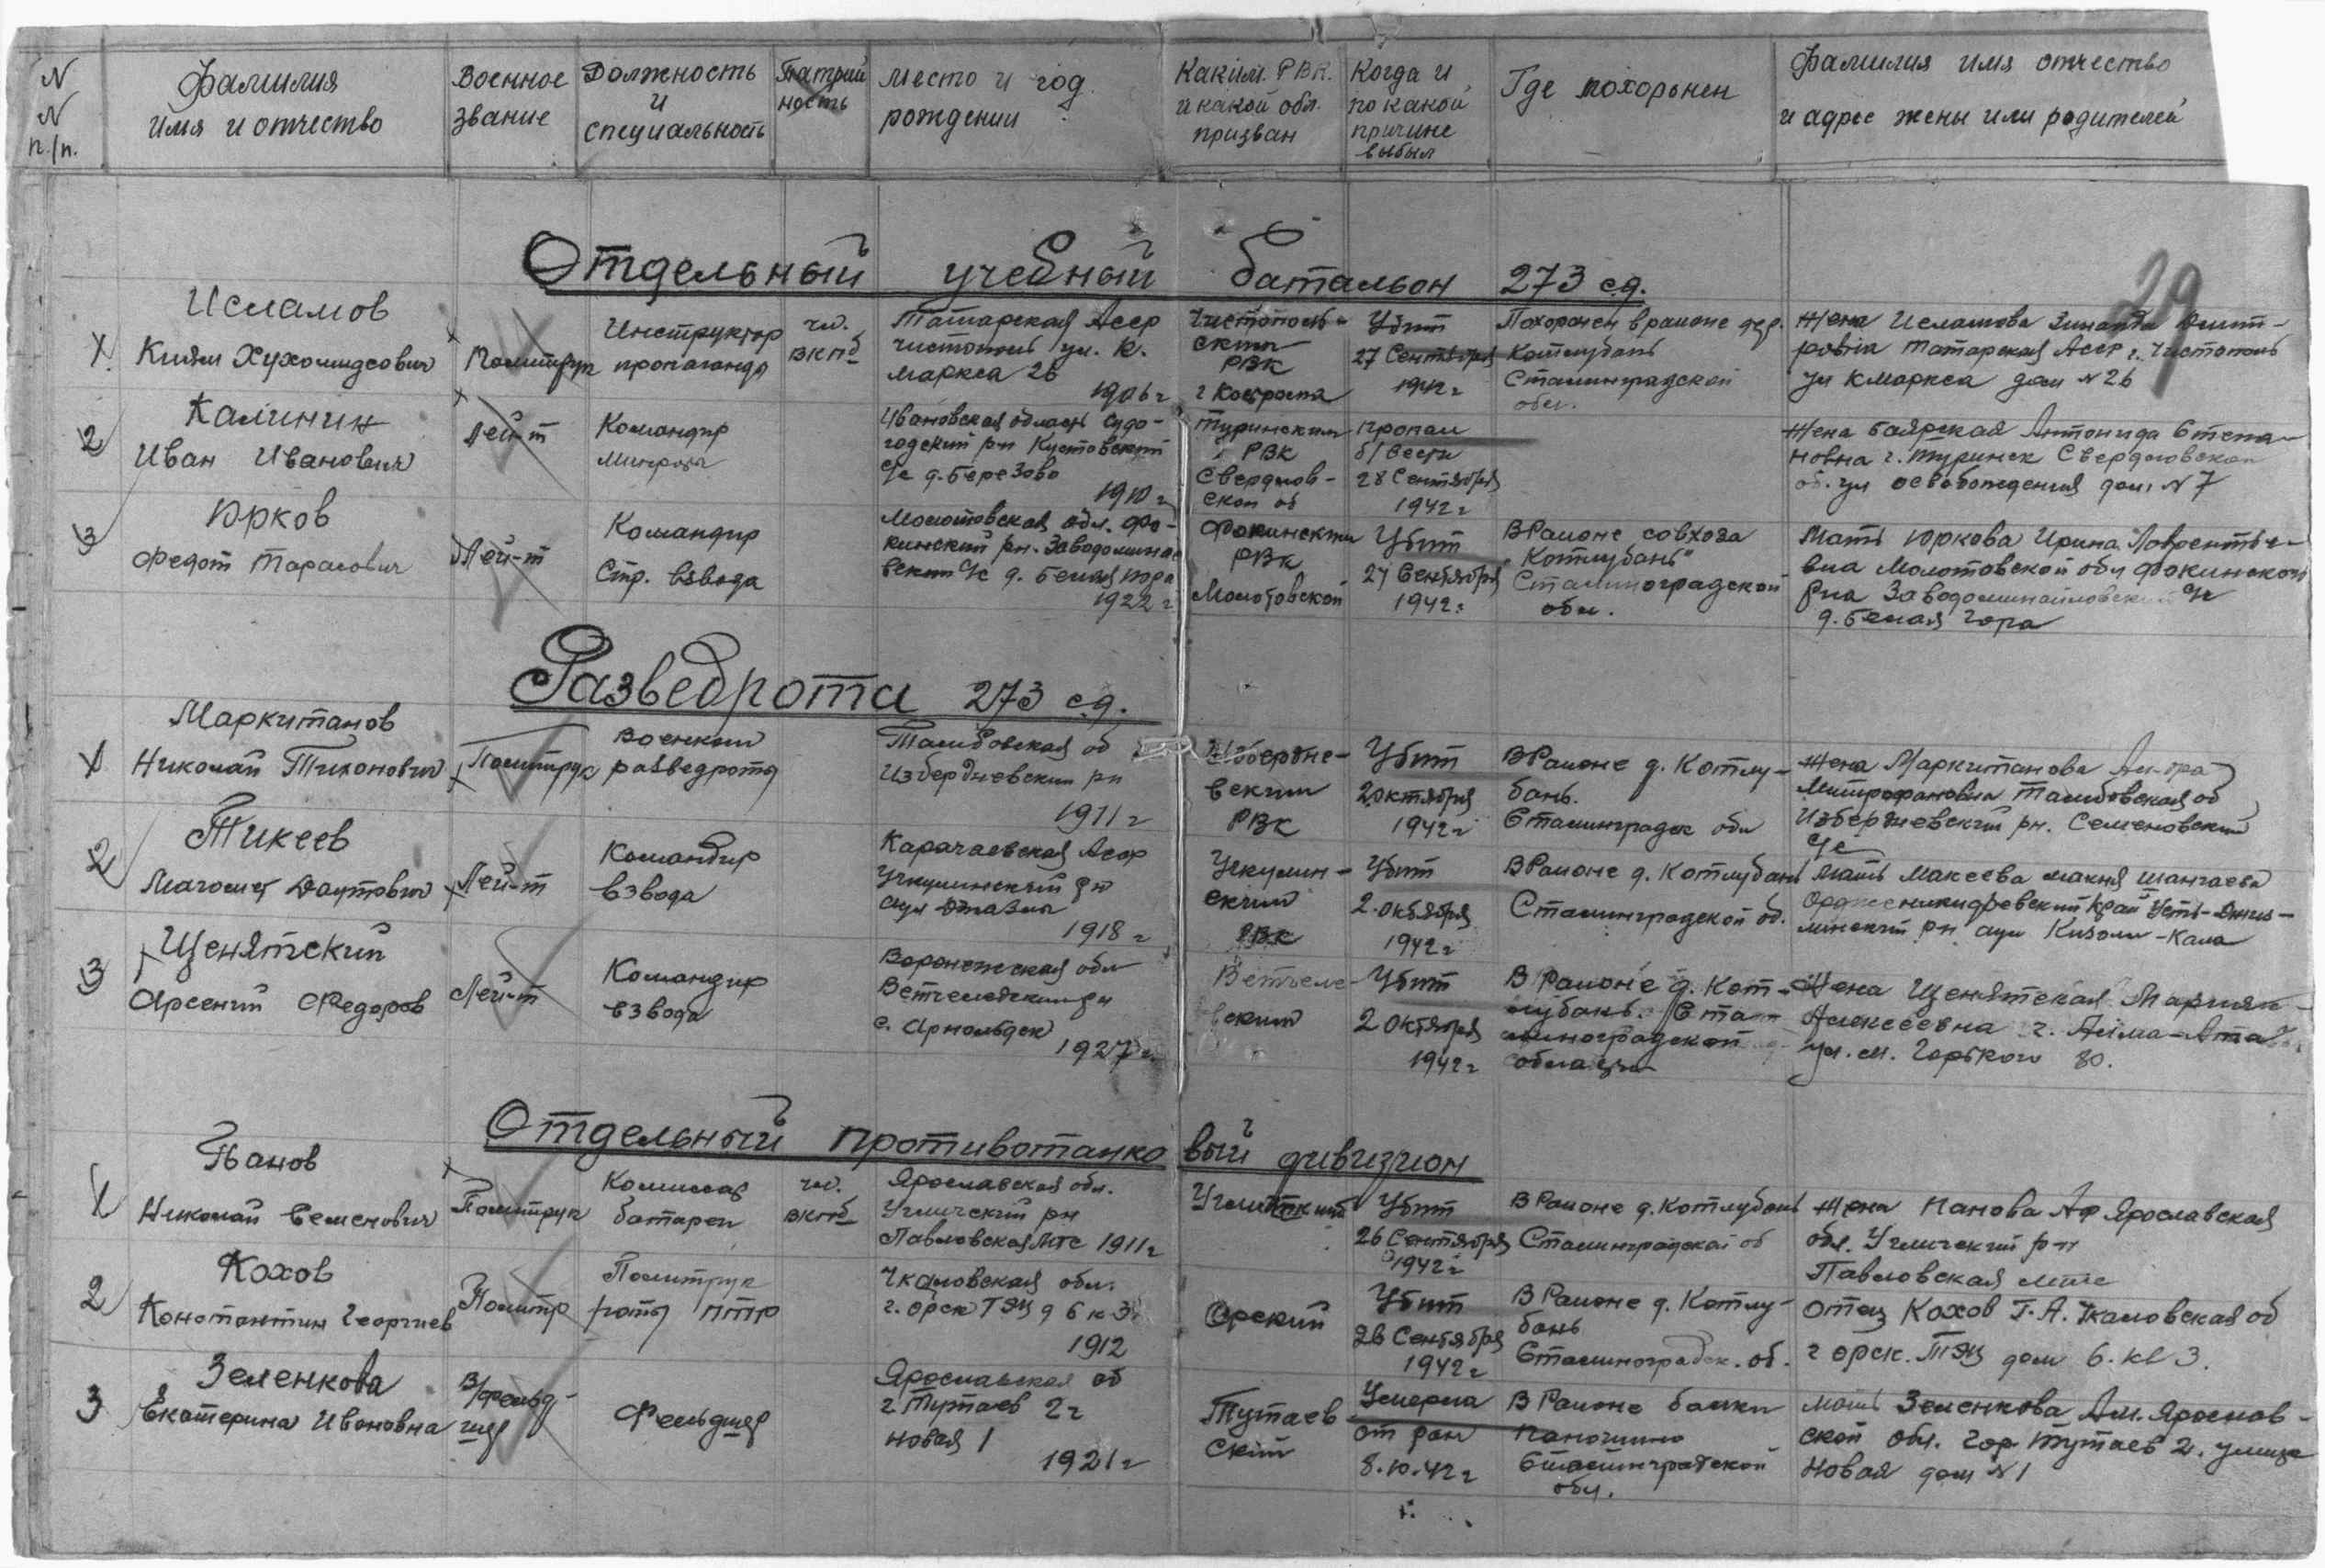 N
N
п./п.
Фамилия
имя и отчество
Военное
звание
Должность
и
специальность
Партий
ность
место и год
рождении
Каким. РВК.
и какой обл.
призван
Когда и
по какой
причине
выбыл
Где похоронен
Фамилия имя отчество
и адрес жены или родителей
29
Отдельный учебный батальон 273 с.д.
1
Исламов
Киям
Политрук
Инструктор
пропаганда
чл.
ВКПб
Татарская Асср
чистополь ул. К.
маркса 26
1906 г
Чистополь-
ским
РВК
г Кострома
Убит
27 Сентября
1942 г
Похоронен в районе дер.
Котлубань
Сталинградской
обл.
Жена Исламова Зинаида Дмит-
ровна Татарская Асср г. Чистополь
ул К Маркса дом N 26
2
Калинин
Иван Иванович
Лей-т
Командир
Минроты
Ивановская область Судо-
годский рн Кустовский
с/с д. Березово
1910 г
Туринским
РВК
Свердлов-
ской об
пропал
б/вести
28 Сентября
1942 г
Жена Боярская Антонида Степа-
новна г. Туринск Свердловской
об. ул освобождения дом N 7
3
Юрков
Федот Тарасович
Лей-т
Командир
Стр. взвода
Молотовская обл. Фо-
кинский рн.
с/с д. Белая гора
1922 г
Фокинским
РВК
Молотовской
Убит
27 Сентября
1942 г
В Районе совхоза
"Котлубань"
Сталиноградской
обл.
Мать Юркова Ирина Лаврентье-
вна Молотовской обл Фокинского
Рна с/с
д. Белая Гора
Разведрота 273 с.д.
1
Маркитанов
Николай Тихонович
Политрук
Военком
разведроты
Тамбовская об
Избердневский рн
1911 г
Избердне-
вским
РВК
Убит
2 октября
1942 г
В Районе д. Котлу-
бань.
Сталинградск обл
Жена Маркитанова
Митрофановна Тамбовская об
Избердневский рн. Семеновский
с/с
2
Тикеев
Магомет Даутович
Лей-т
Командир
взвода
Карачаевская Асср
Учкулинский рн
аул
1918 г
Учкулин-
ский
РВК
Убит
2 октября
1942 г
В Районе д. Котлубань
Сталинградской об.
Мать Макеева
Орджоникидзевский край Усть-Джегу-
минский рн аул Кизыл-Кала
3
Щенятский
Арсений Федоров
Лей-т
Командир
взвода
Воронежская обл
рн
с.
1927 г
вский
Убит
2 октября
1942 г
В Районе д. Кот-
лубань. Ста-
линоградской
области
Жена Щенятская
Алексеевна г. Алма-Ата
ул. м. Горького 80.
Отдельный противотанковый дивизион
1
Панов
Николай Семенович
Политрук
Комиссар
батареи
чл.
ВКПб
Ярославская обл.
Угличский рн
Павловская Мтс 1911 г
Угличский
Убит
26 Сентября
1942 г
В Районе д. Котлубань
Сталинградской об
Жена Панова Аф Ярославская
обл. Угличский р-н
Павловская мтс
2
Кохов
Константин Георгиев
Политр
Политрук
роты ПТР
Чкаловская обл.
г. Орск ТЭЦ д 6 к 3
1912
Орский
Убит
26 Сентября
1942 г
В Районе д. Котлу-
бань
Сталиноградск. об.
отец Кохов Г. А. Чкаловская об
г Орск. ТЭЦ дом 6. кв 3.
3
Зеленкова
Екатерина Ивановна
В/фельд-
шер
Фельдшер
Ярославская об
г Тутаев 2 г
новая 1
1921 г
Тутаев-
ский
Умерла
от ран
8.10.42 г
В Районе балки
Паньшино
Сталинградской
обл.
мать Зеленкова Ам. Ярослав-
ской обл. Гор Тутаев 2. улица
Новая дом N 1